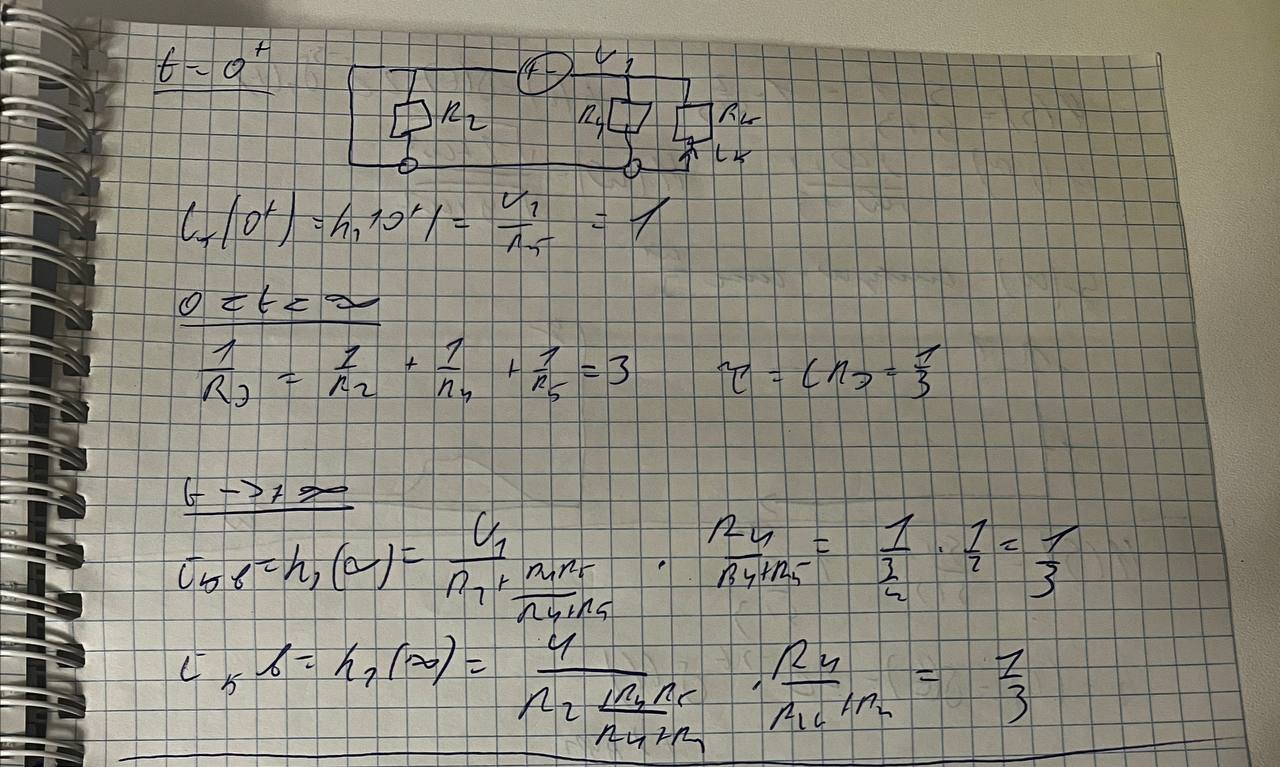 t = 0⁺
+ - U₁
R₂ R₄ R₅
i₅
i₅(0⁺) = h₁(0⁺) = U₁/R₅ = 1
0 < t < ∞
1/RЭ = 1/R₂ + 1/R₄ + 1/R₅ = 3 τ = CRЭ = 1/3
t -> ∞
i₅ в = h₁(∞) = U₁/(R₂ + R₄R₅/(R₄+R₅)) · R₄/(R₄+R₅) = 1/(3/2) · 1/2 = 1/3
i₅ в = h₁(∞) = U/(R₂ + R₄R₅/(R₄+R₅)) · R₄/(R₅+R₄) = 1/3